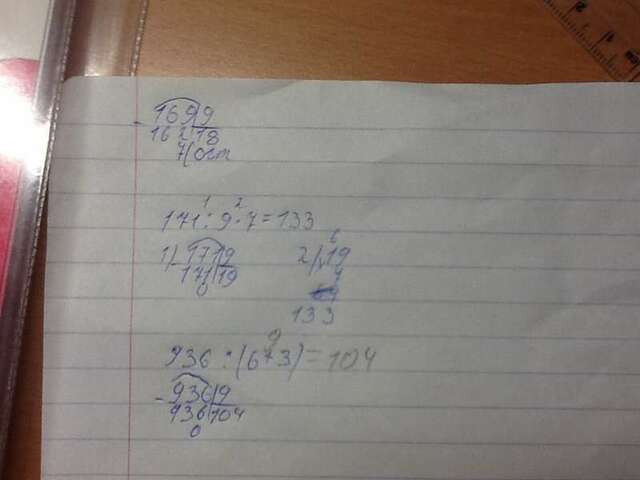 - 169|9
162|18
7(ост
1 2
171:9·7=133
1) - 171|9
171|19
0
6
2) ·19
7
133
9
936:(6+3)=104
- 936|9
936|104
0